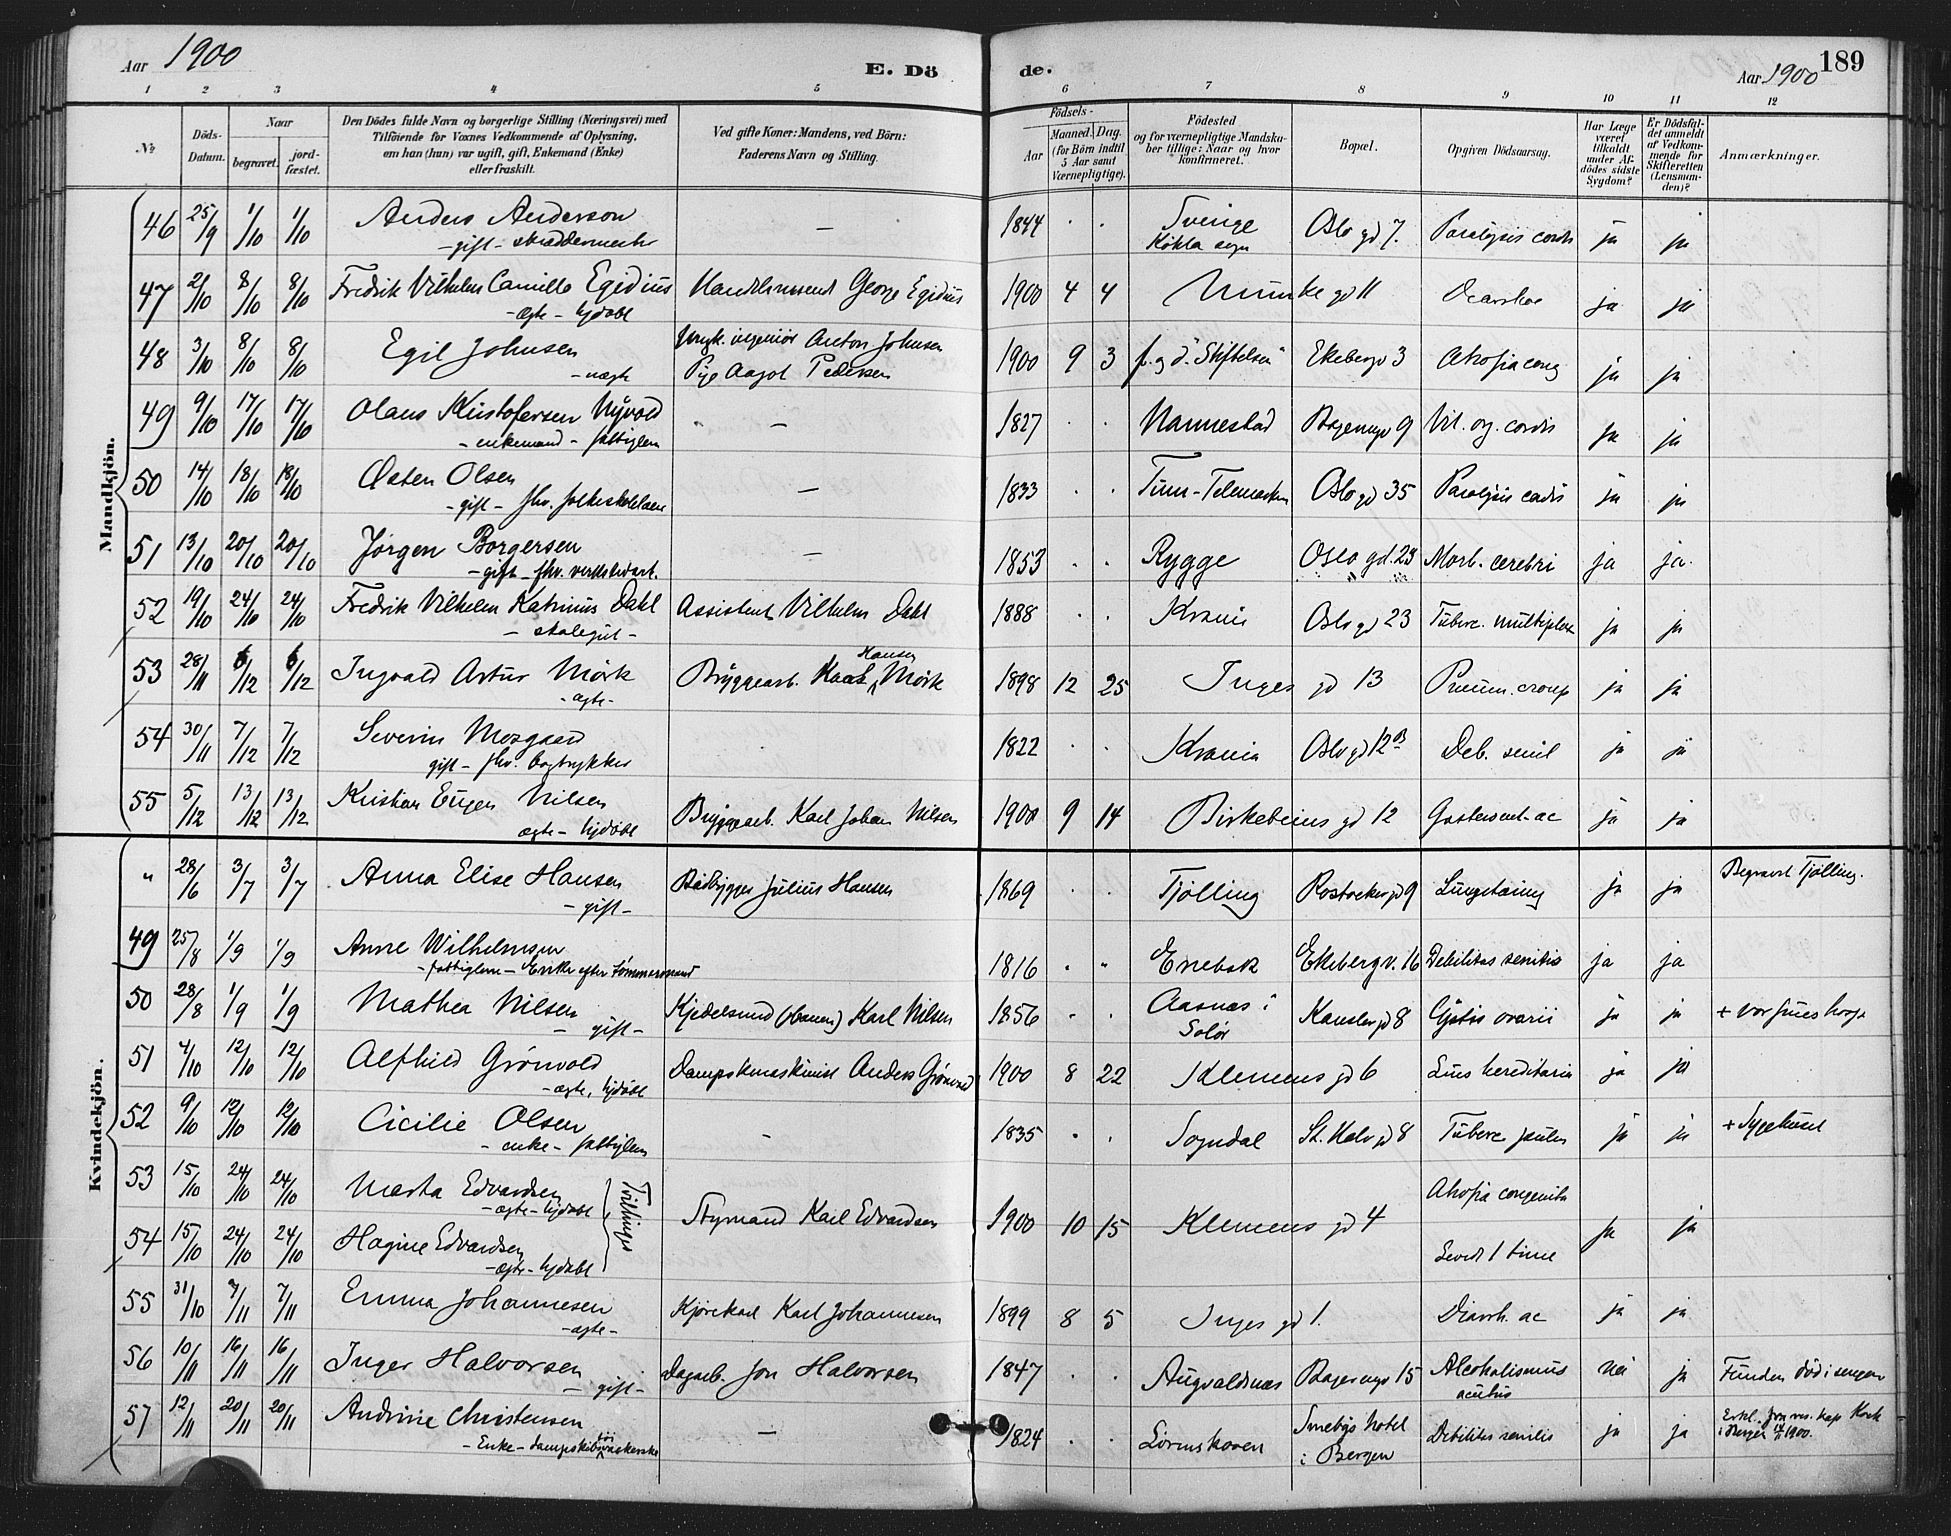 Aar 1900 E. Döde. Aar 1900 189
1 2 3 4 5 6 7 8 9 10 11 12
No Döds-Datum. Naar begravet. jordfæstet. Den Dödes fulde Navn og borgerlige Stilling (Næringsvei) med Tilföiende for Voxnes Vedkommende af Oplysning, om han (hun) var ugift, gift, Enkemand (Enke) eller fraskilt. Ved gifte Koner: Mandens, ved Börn: Faderens Navn og Stilling. Födsels- Aar Maaned. Dag. (for Börn indtil 5 Aar samt Værnepligtige). Födested og for værnepligtige Mandskaber tillige: Naar og hvor Konfirmeret. Bopæl. Opgiven Dödsaarsag. Har Læge været tilkaldt under Afdödes sidste Sygdom? Er Dödsfaldet anmeldt af Vedkommende for Skifteretten (Lensmanden)? Anmærkninger.
Mandkjön.
46 25/9 1/10 1/10 Anders Anderson 1844 . . Sverige Oslo gd 7. Paralysis cordis ja ja
- gift - skræddermester - Kökla sogn
47 2/10 8/10 8/10 Fredrik Vilhelm Camillo Egidius Handelsmand George Egidius 1900 4 4 Munke gd 11 ja ja
- ægte - hjdöbt
48 3/10 8/10 8/10 Egil Johnsen ingeniör Anton Johnsen 1900 9 3 f. og d. "Stiftelsen" Ekebergv 3 Atrofia cong ja ja
- uægte Pige Aagot Pedersen
49 9/10 17/10 17/10 Olaus Kristofersen Nyvold - 1827 . . Nannestad 9 Vit. org. cordis ja ja
- enkemand - fattiglem
50 14/10 18/10 18/10 Østen Olsen - 1833 . . Tinn - Telemarken Oslo gd 35 Paralysis cordis ja ja
- gift - fhv. folkeskolelærer
51 13/10 20/10 20/10 Jörgen Borgersen - 1853 . . Rygge Oslo gd. 23 Morb. cerebri ja ja.
- gift - fhv.
52 19/10 24/10 24/10 Fredrik Vilhelm Katrinus Dahl Assistent Vilhelm Dahl 1888 . . Krania Oslo gd 23 Tuberc. multiplex ja ja
- skolegut -
53 28/11 6/12 6/12 Ingvald Artur Mörk Bryggearb. Hansen Mörk 1898 12 25 Inges gd 13 Pneum. croup ja ja
- ægte -
54 30/11 7/12 7/12 Severin Mosgaard 1822 . . Krania Oslo gd 12 B Deb. senil ja ja
gift - fhv. bogtrykker
55 5/12 13/12 13/12 Kristian Eugen Nilsen Bryggearb. Karl Johan Nilsen 1900 9 14 Birkebeins gd 12 Gastroent. ac ja ja
ægte - hjdöbt
Kvindekjön.
" 28/6 3/7 3/7 Anna Elise Hansen Baadbygger Julius Hansen 1869 . . Tjölling Rostocker gd 9 Lungetæring ja ja Begravet Tjölling.
- gift -
49 25/8 1/9 1/9 Anne Wilhelmsen 1816 . " Enebak Ekebergv. 16 Debilitas senilis ja ja
- fattiglem - Enke efter Tömmermand
50 28/8 1/9 1/9 Mathea Nilsen Kjedelsmed Karl Nilsen 1856 . . Aasnæs i Kansler gd 8 Cystis ovarii ja ja + Vor frues hosp
- gift - Solör
51 4/10 12/10 12/10 Alfhild Grönvold Dampskmaskinist Anders Grönvold 1900 8 22 Klemens gd 6 Lues hereditaria ja ja
- ægte, hjdöbt
52 9/10 12/10 12/10 Cicilie Olsen - 1835 . . Sogndal St. Halv. gd 8 Tuberc pulm ja ja + Sygehuset
- enke - fattiglem
53 15/10 24/10 24/10 Marta Edvardsen Atrofia congenita
- ægte - hjdöbt Tvillinger Styrmand Karl Edvardsen 1900 10 15 Klemens gd 4 ja ja
54 15/10 24/10 24/10 Hagine Edvardsen Levede 1 time
- ægte - hjdöbt
55 31/10 7/11 7/11 Emma Johannesen Kjörekarl Karl Johannesen 1899 8 5 Inges gd 1. Diarrh. ac ja ja
- ægte -
56 10/11 16/11 16/11 Inger Halvorsen Dagarb. Jon Halvorsen 1847 . . Augvaldsnæs 15 Alcoholismus acutus nei ja Funden död i sengen
- gift -
57 12/11 20/11 20/11 Andrine Christensen - 1824 . . Lörenskoven Smebys hotel i Bergen Debilitas senilis ja ja Erkl. fra res. kap i Bergen 1900.
- Enke - dampskibstöivaskerske